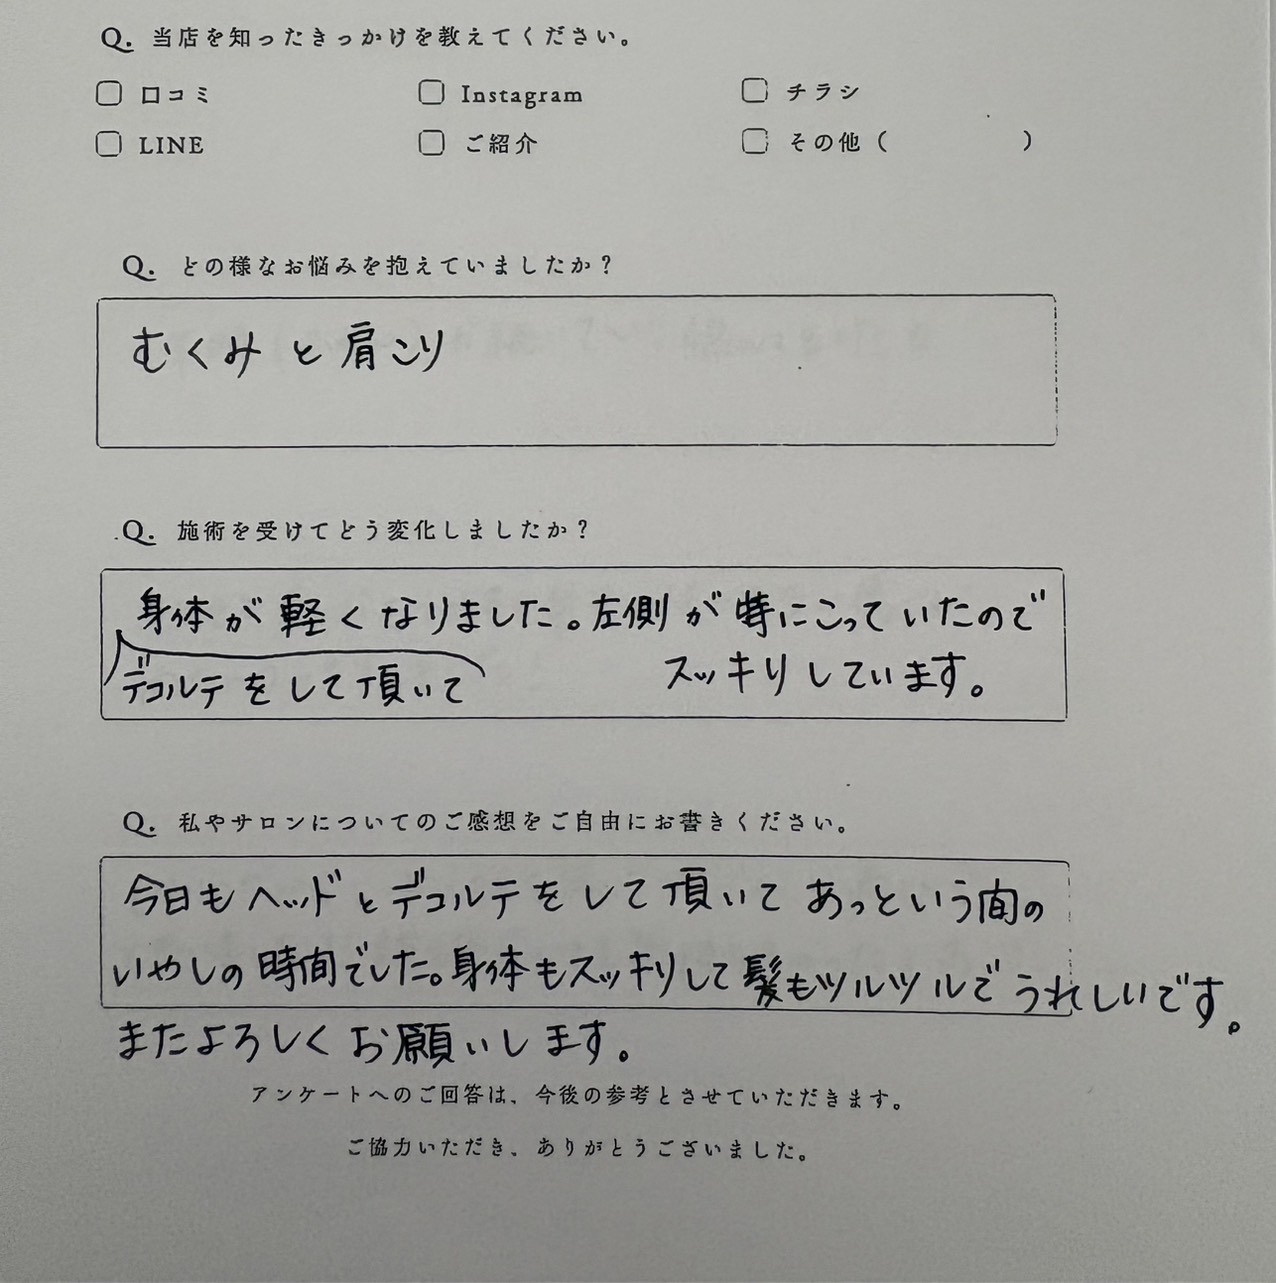 Q. 当店を知ったきっかけを教えてください。
口コミ Instagram チラシ
LINE ご紹介 その他 ( )
Q. どの様なお悩みを抱えていましたか？
むくみと肩こり
Q. 施術を受けてどう変化しましたか？
身体が軽くなりました。左側が特にこっていたので
デコルテをして頂いて スッキリしています。
Q. 私やサロンについてのご感想をご自由にお書きください。
今日もヘッドとデコルテをして頂いてあっという間の
いやしの時間でした。身体もスッキリして髪もツルツルでうれしいです。
またよろしくお願いします。
アンケートへのご回答は、今後の参考とさせていただきます。
ご協力いただき、ありがとうございました。